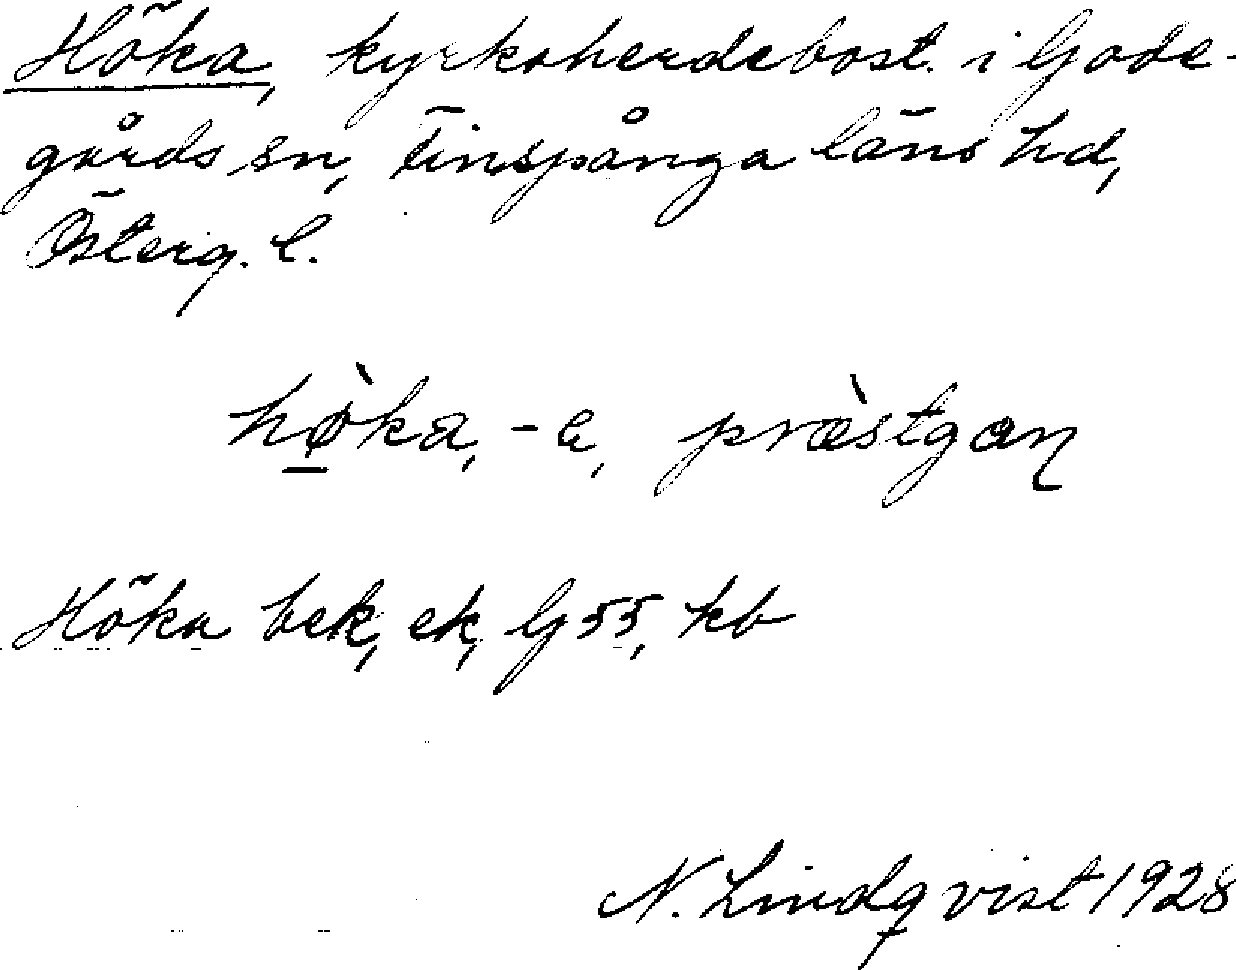 Höka, kyrkoherdebost. i Gode-
gårds sn, Finspånga läns hd,
Österg. l.
hø̀ka, -a, præ̀stgaɳ
Höka bek, ek, G 55, kb
N. Lindqvist 1928